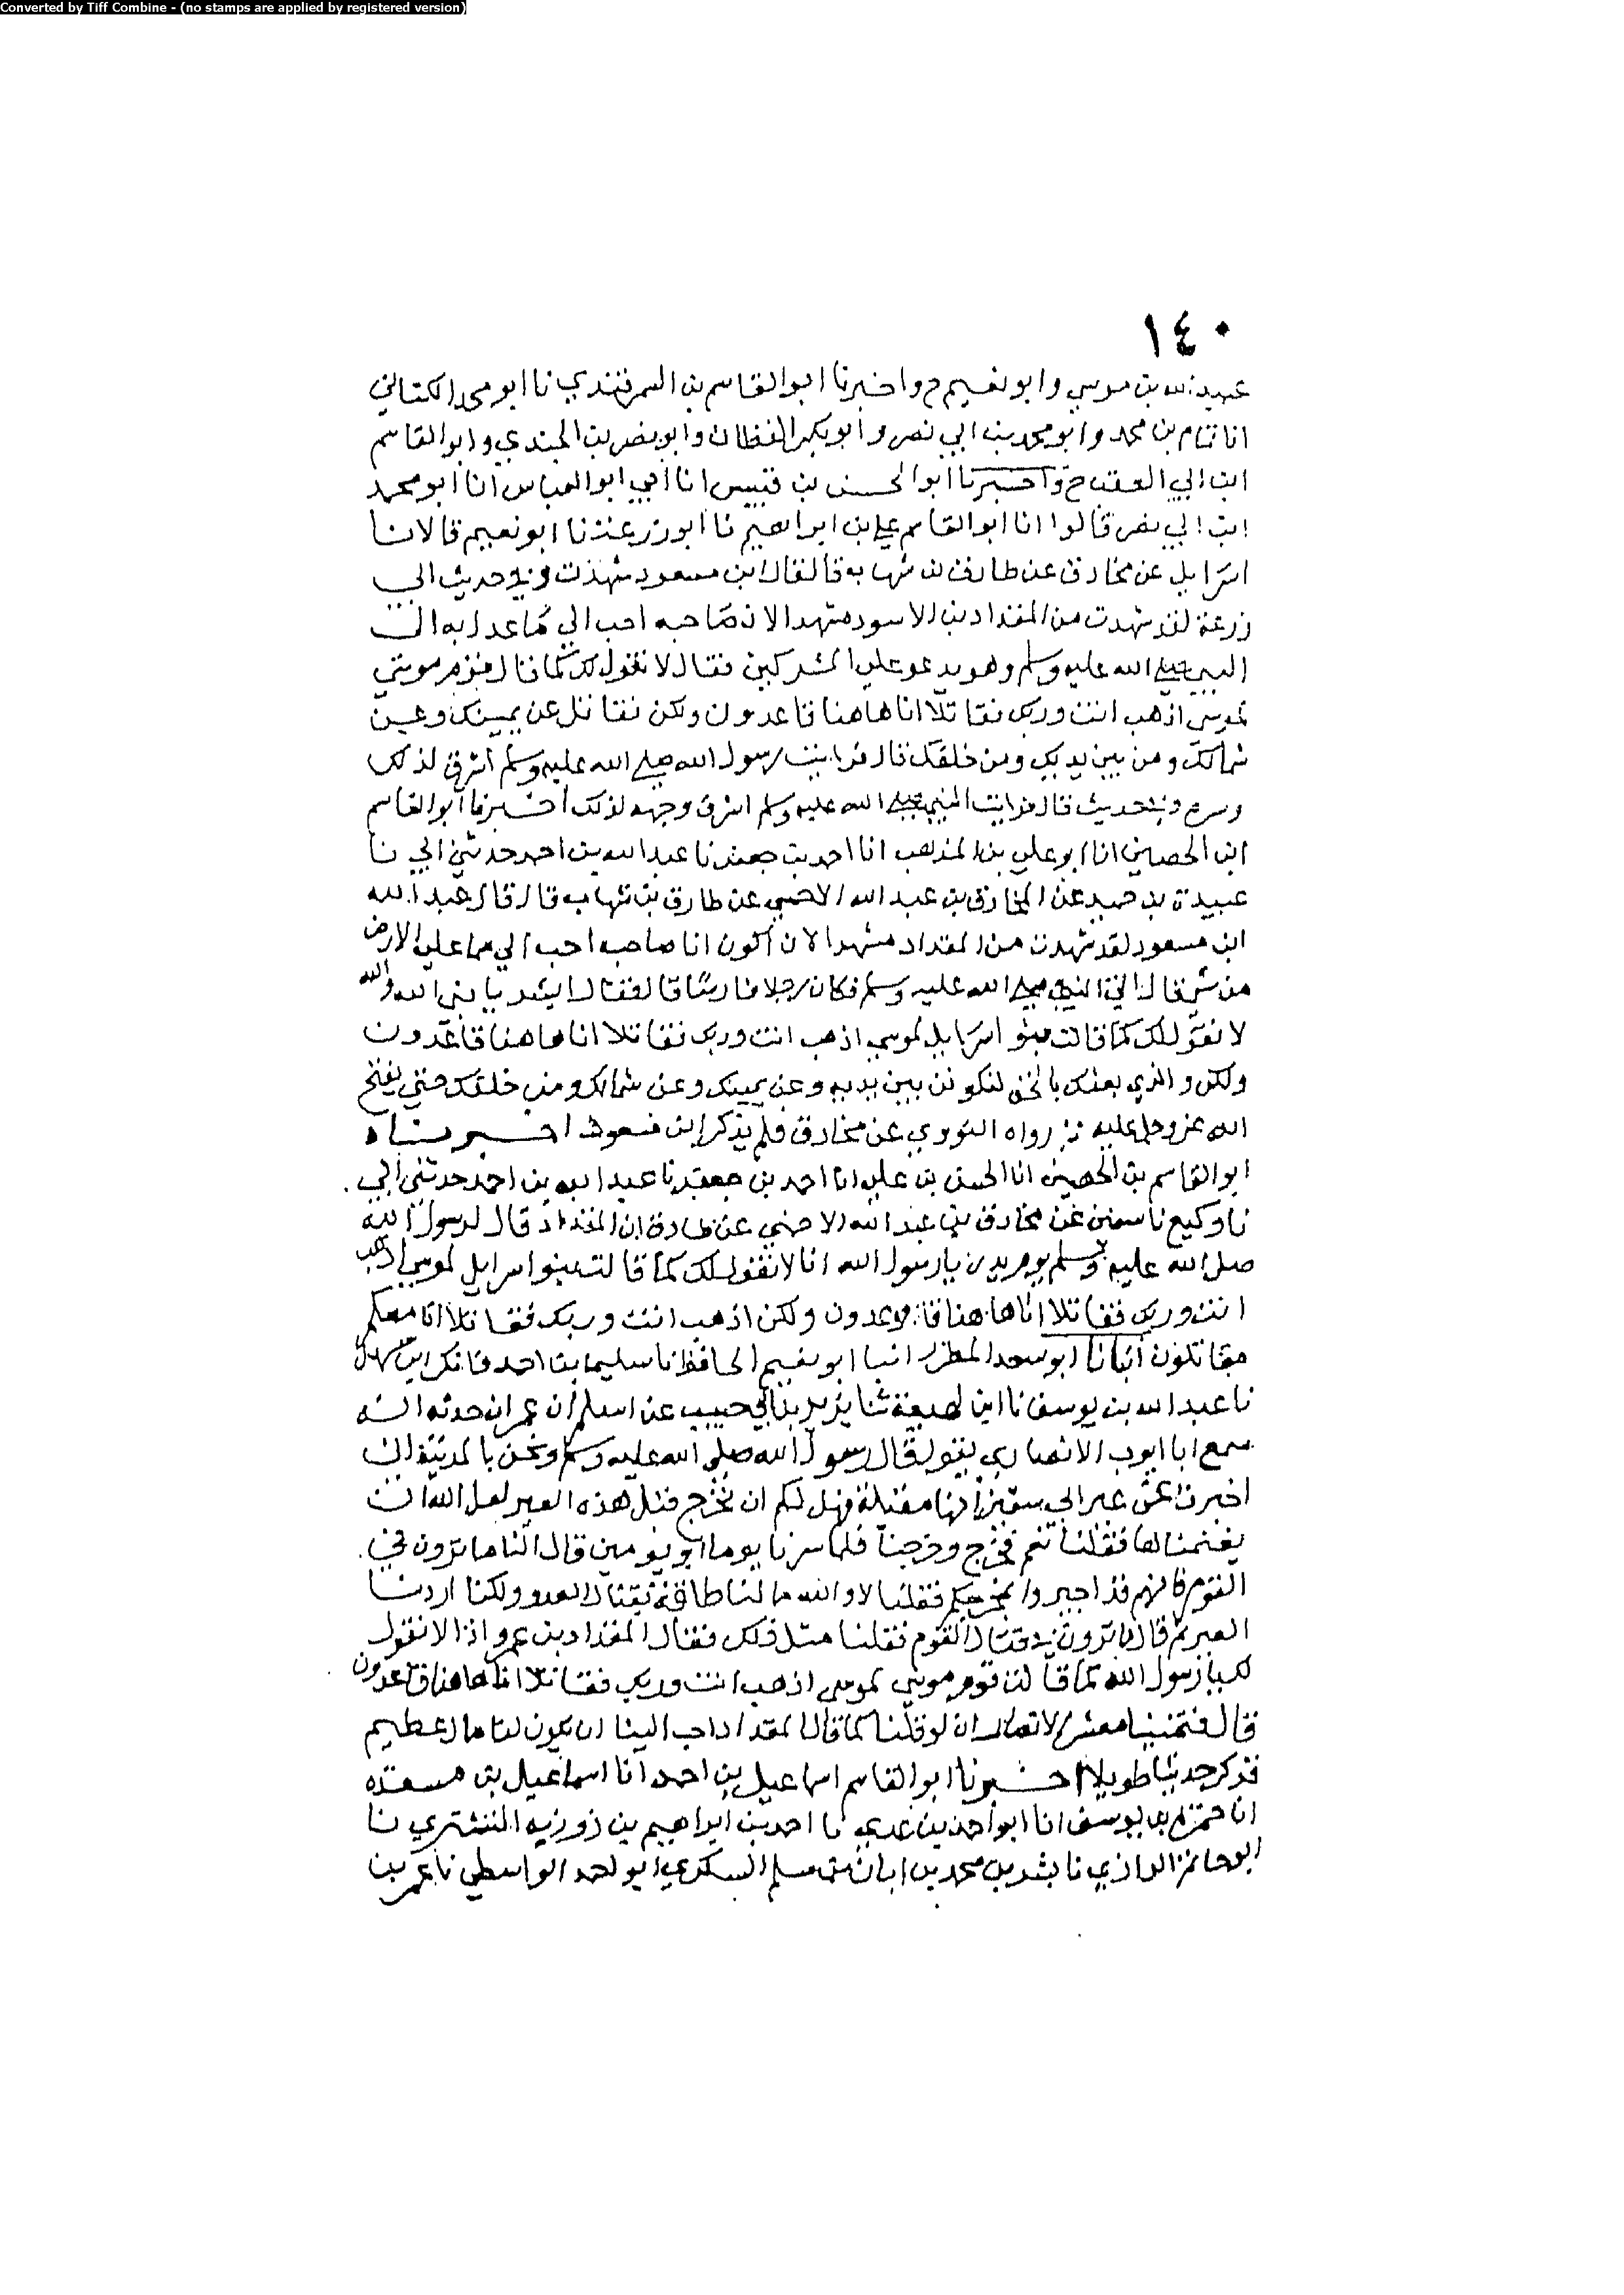 Converted by Tiff Combine - (no stamps are applied by registered version)
١٤٠
عبيد الله بن موسي وابو نعيم ح واخبرنا ابو القاسم بن السمرقندي نا ابو محمد الكتاني
انا تمام بن محمد وابو محمد بن ابي نصر وابو بكر القطان وابو نصر بن الجندي وابو القاسم
ابن ابي العقب ح واخبرنا ابو الحسن بن قبيس انا ابي ابو العباس انا ابو محمد
ابن ابي نصر قالوا انا ابو القاسم علي بن ابراهيم نا ابو زرعة نا ابو نعيم قالا نا
اسرايل عن مخارق عن طارق بن شهاب قال قال ابن مسعود شهدت وفي حديث ابي
زرعة لقد شهدت من المقداد بن الاسود مشهدا لان صاحبه احب الي مما عدل به اتي
النبي صلي الله عليه وسلم وهو يدعو علي المشركين فقال لا نقول لك كما قال قوم موسي
لموسي اذهب انت وربك فقاتلا انا هاهنا قاعدون ولكن نقاتل عن يمينك وعن
شمالك ومن بين يديك ومن خلفك قال فرايت رسول الله صلي الله عليه وسلم اشرق لذلك
وسره وفي حديث قال فرايت النبي صلي الله عليه وسلم اشرق وجهه لذلك اخبرنا ابو القاسم
ابن الحصين انا ابو علي بن المذهب انا احمد بن جعفر نا عبد الله بن احمد حدثني ابي نا
عبيدة بن حميد عن المخارق بن عبد الله الاحمسي عن طارق بن شهاب قال قال عبد الله
ابن مسعود لقد شهدت من المقداد مشهدا لان اكون انا صاحبه احب الي مما علي الارض
من شي قال اتي النبي صلي الله عليه وسلم فكان رجلا فارسا قال فقال ابشر يا نبي الله والله
لا نقول لك كما قالت بنو اسرايل لموسي اذهب انت وربك فقاتلا انا هاهنا قاعدون
ولكن والذي بعثك بالحق لنكونن بين يديه وعن يمينك وعن شمالك ومن خلفك حتي يفتح
الله عز وجل عليه رواه الثوري عن مخارق فلم يذكر ابن مسعود اخبرناه
ابو القاسم بن الحصين انا الحسن بن علي انا احمد بن جعفر نا عبد الله بن احمد حدثني ابي
نا وكيع نا سفين عن مخارق بن عبد الله الاحمسي عن طارق ان المقداد قال لرسول الله
صلي الله عليه وسلم يوم بدر يا رسول الله انا لا نقول لك كما قالت بنو اسرايل لموسي اذهب
انت وربك فقاتلا انا هاهنا قاعدون ولكن اذهب انت وربك فقاتلا انا معكم
مقاتلون انبانا ابو سعد المطرز انبا ابو نعيم الحافظ نا سليمان بن احمد نا بكر ابن سهل
نا عبد الله بن يوسف نا ابن لهيعة ثنا يزيد بن ابي حبيب عن اسلم ان عمران حدثه انه
سمع ابا ايوب الانصاري يقول قال رسول الله صلي الله عليه وسلم ونحن بالمدينة اني
اخبرت عن عير ابي سفين انها مقبلة فهل لكم ان نخرج قبل هذه العير لعل الله ان
يغنمناها فقلنا نعم فخرج وخرجنا فلما سرنا يوما او يومين قال لنا ما ترون في
القوم فانهم قد اخبروا بمخرجكم فقلنا لا والله ما لنا طاقة بقتال العدو ولكنا اردنا
العير ثم قال ما ترون في قتال القوم فقلنا مثل ذلك فقال المقداد بن عمرو اذا لا نقول
لك يا رسول الله كما قالت قوم موسي لموسي اذهب انت وربك فقاتلا انا هاهنا قاعدون
قال فتمنينا معشر الانصار ان لو قلنا كما قال المقداد احب الينا ان يكون لنا مال عظيم
فذكر حديثا طويلا اخبرنا ابو القاسم اسماعيل بن احمد انا اسماعيل بن مسعدة
انا حمزة بن يوسف انا ابو احمد بن عدي نا احمد بن ابراهيم بن التستري نا
ابو حاتم الرازي نا بشر بن محمد بن ابان بن مسلم السكري ابو احمد الواسطي نا عمر بن